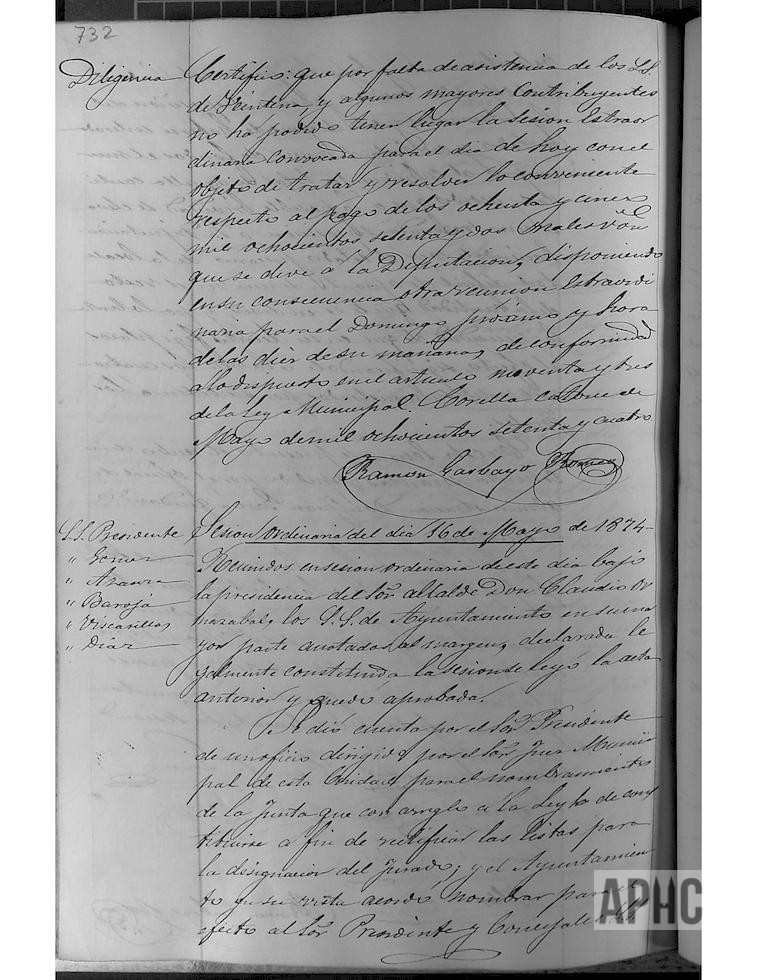 732
Diligencia
Certifico: que por falta de asistencia de los S.S.
de Veintena, y algunos mayores Contribuyentes
no ha podido tener lugar la sesion Estraor
dinaria convocada para el dia de hoy con el
objeto de tratar y resolver lo conveniente
respecto al pago de los ochenta y cinco
mil ochocientos setenta y dos reales von
que se deve a la Diputacion, disponiendo
en su consecuencia otra reunion Estraordi
naria para el Domingo próximo y hora
de las diez de su mañana, de conformidad
a lo dispuesto en el articulo noventa y tres
de la Ley Municipal. Corella catorce de
Mayo de mil ochocientos setenta y cuatro
Ramon Garbayo
S.S. Presidente
" Gomez
" Baroja
" Viscarillas
" Diaz
Sesion ordinaria del dia 16 de Mayo de 1874
Reunidos en sesion ordinaria de este dia bajo
la presidencia del Sor. alcalde Don Claudio
los S.S. de Ayuntamiento en su ma
yor parte anotados al margen, declarada le
galmente constituida la sesion se leyó la acta
anterior y quedó aprobada.
Se dió cuenta por el Sor. Presidente
de un oficio dirigido por el Sor. Juez Munici
pal de esta Ciudad para el nombramiento
de la Junta que con arreglo a la Ley ha de cons
tituirse a fin de rectificar las listas para
la designacion del Jurado; y el Ayuntamien
to en su vista acordó nombrar para el
efecto al Sor. Presidente y Concejales
APHC